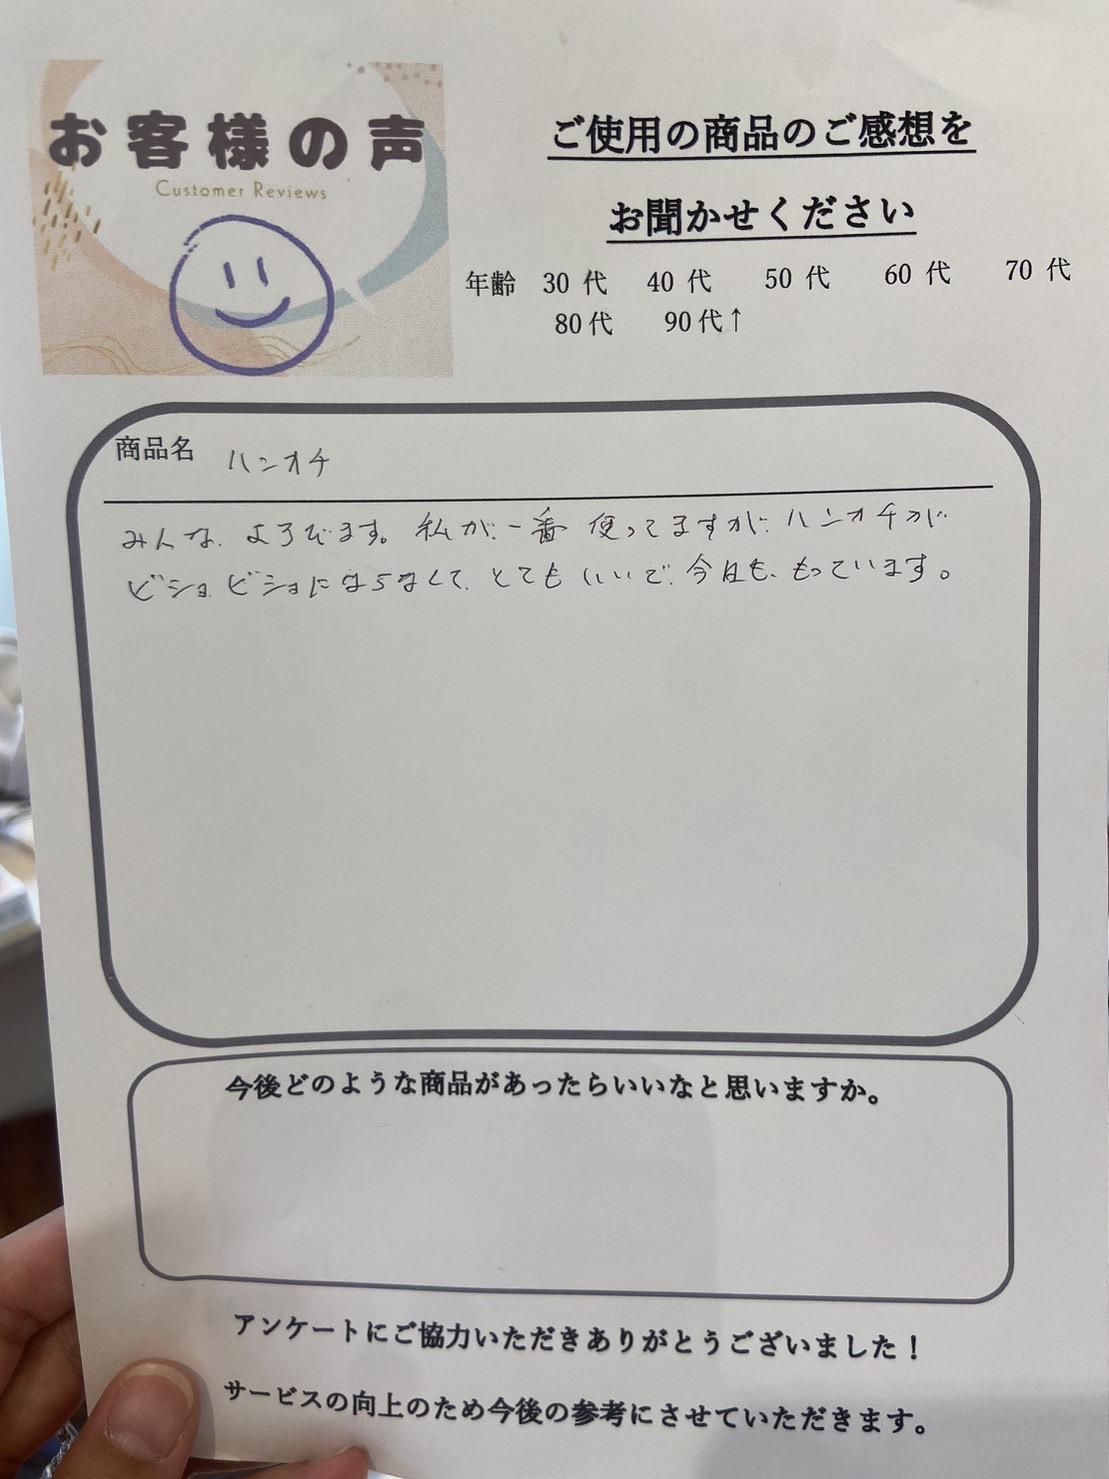 お客様の声
Customer Reviews
ご使用の商品のご感想を
お聞かせください
年齢 30代 40代 50代 60代 70代
80代 90代↑
商品名 ハンオチ
みんな、よろびます。私が、一番使ってますが、ハンオチが
ビショビショにならなくて、とてもいいで、今日も、もっています。
今後どのような商品があったらいいなと思いますか。
アンケートにご協力いただきありがとうございました！
サービスの向上のため今後の参考にさせていただきます。